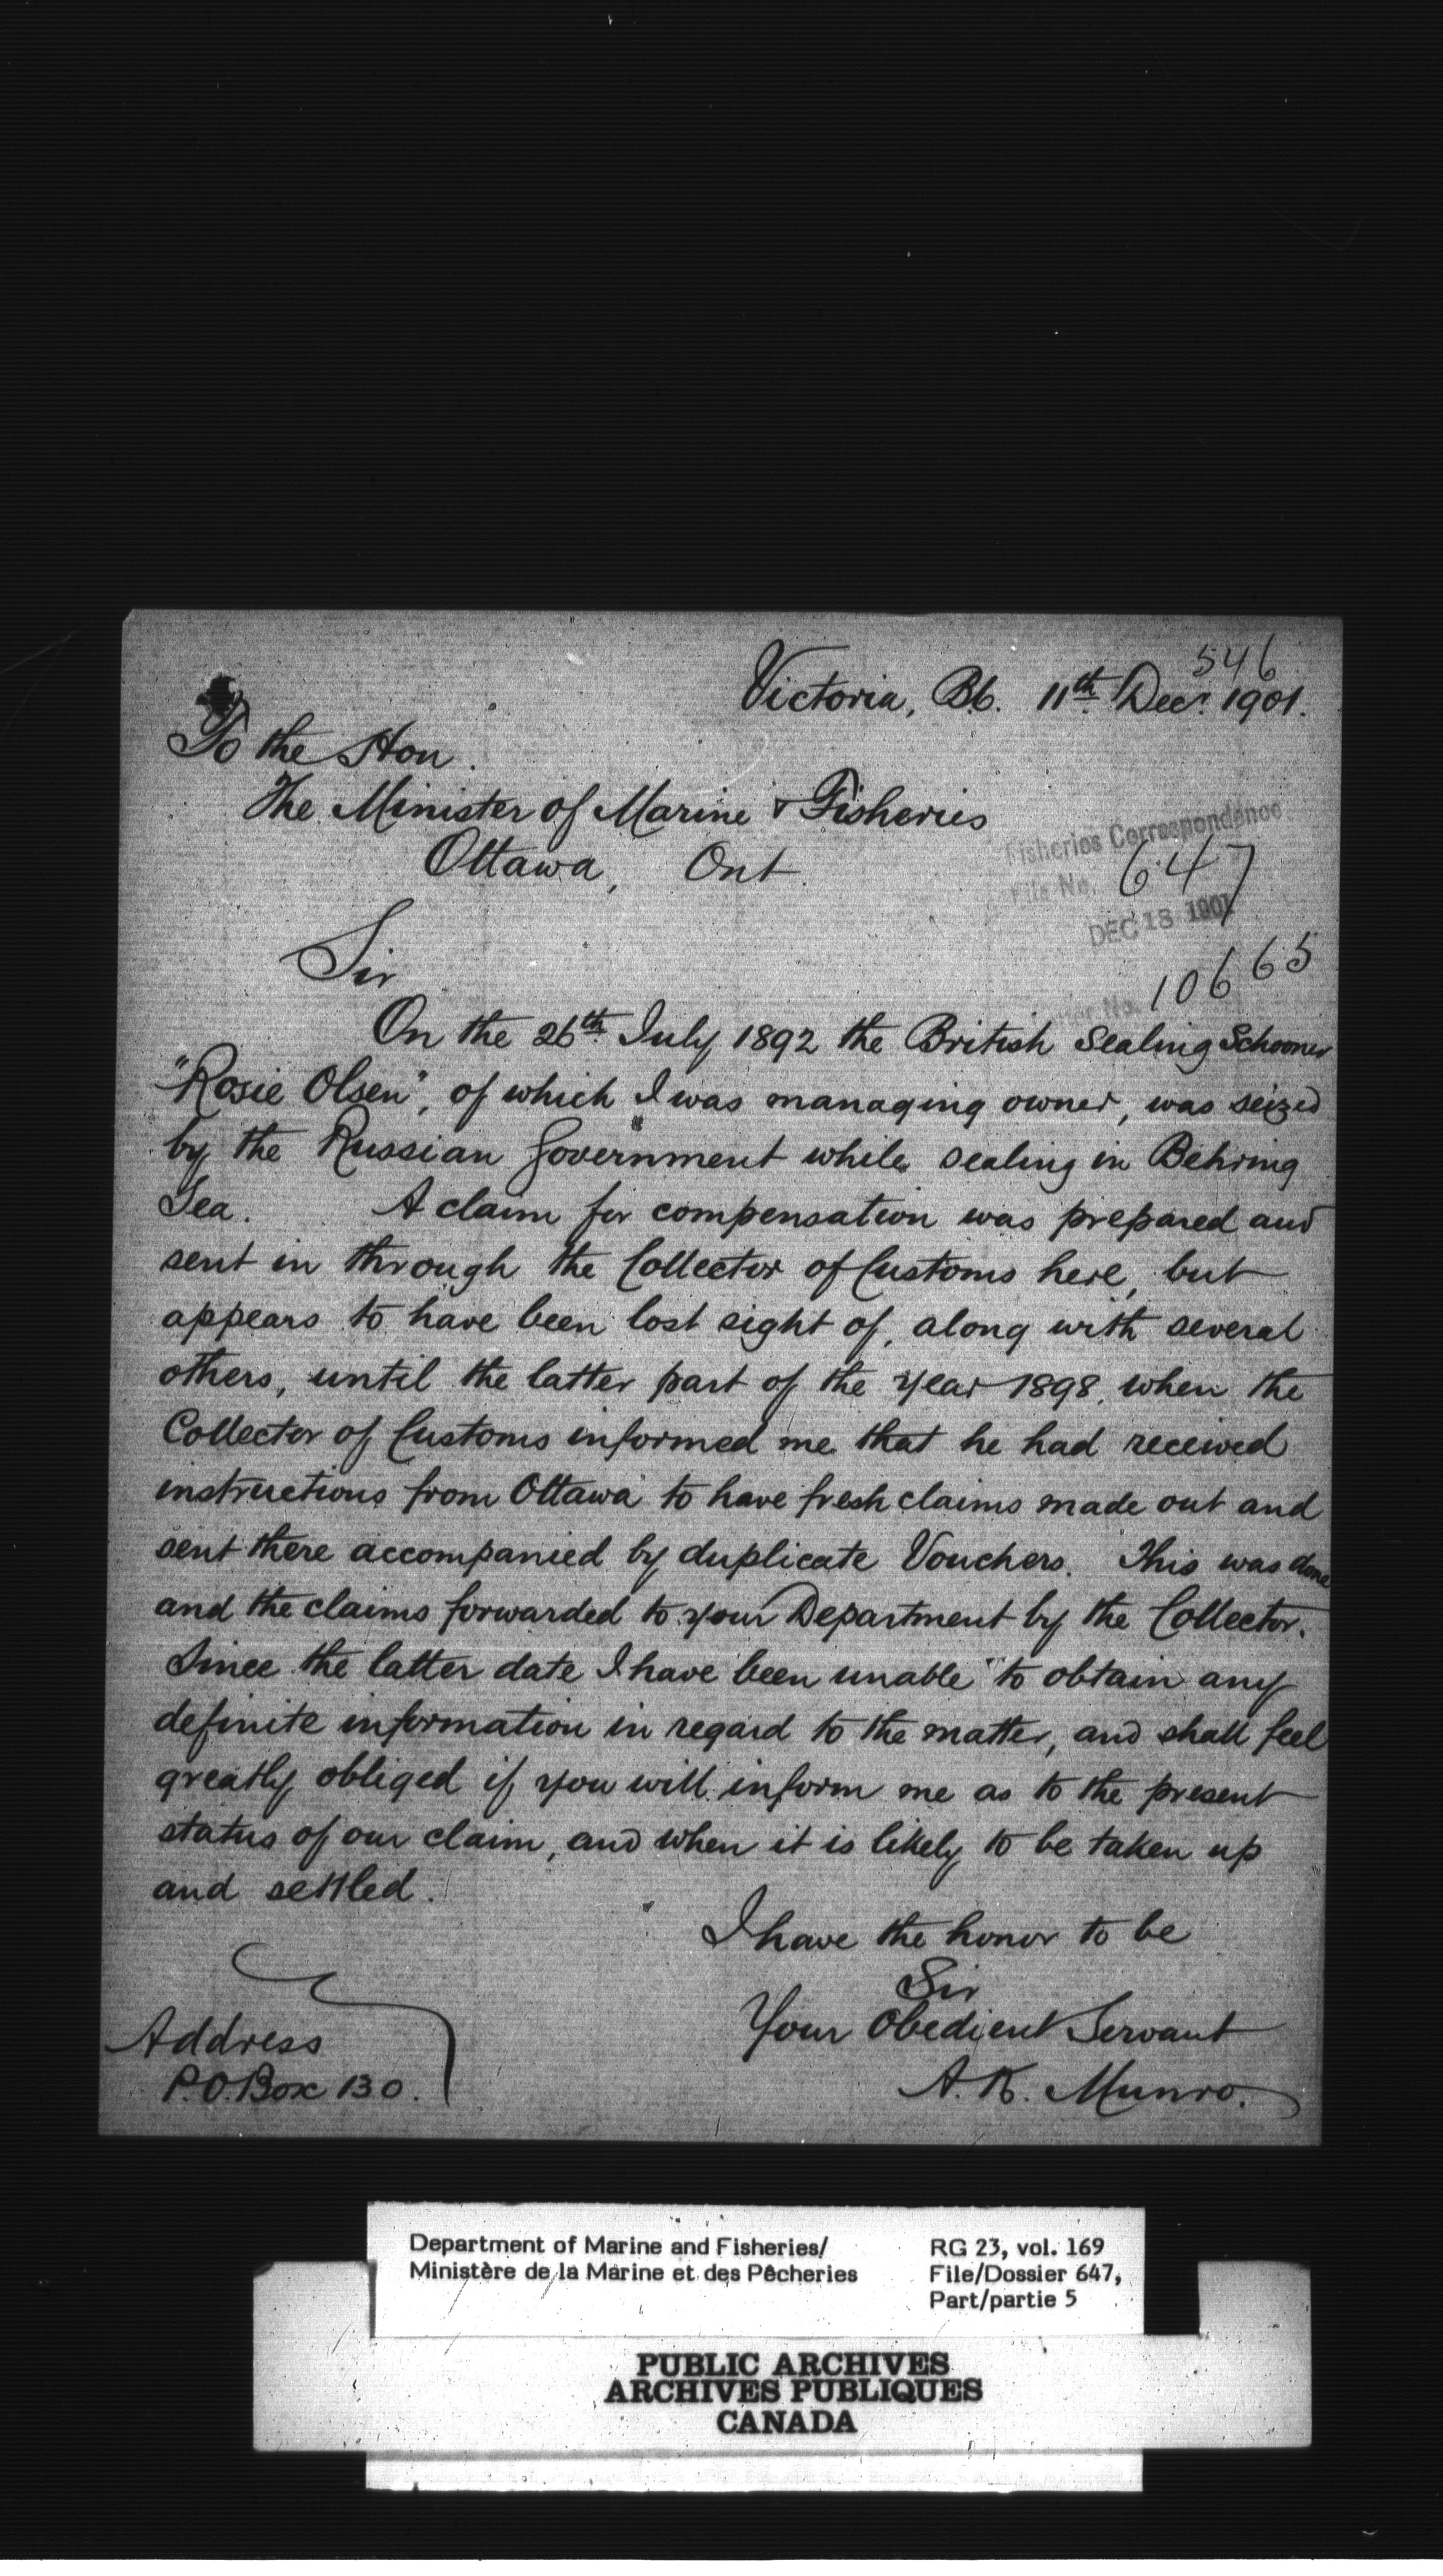 546
Victoria, B.C. 11th Decr. 1901.
To the Hon.
The Minister of Marine & Fisheries
Ottawa, Ont
Fisheries Correspondence
File No. 647
DEC 18 1901
Sir
No. 10665
On the 26th July 1892 the British Sealing Schooner
"Rosie Olsen", of which I was managing owner, was seized
by the Russian Government while sealing in Behring
Sea. A claim for compensation was prepared and
sent in through the Collector of Customs here, but
appears to have been lost sight of, along with several
others, until the latter part of the year 1898, when the
Collector of Customs informed me that he had received
instructions from Ottawa to have fresh claims made out and
sent there accompanied by duplicate Vouchers. This was done
and the claims forwarded to your Department by the Collector.
Since the latter date I have been unable to obtain any
definite information in regard to the matter, and shall feel
greatly obliged if you will inform me as to the present
status of our claim, and when it is likely to be taken up
and settled.
I have the honor to be
Sir
Your Obedient Servant
A. K. Munro.
Address
P.O. Box 130.
Department of Marine and Fisheries/
Ministère de la Marine et des Pêcheries
RG 23, vol. 169
File/Dossier 647,
Part/partie 5
PUBLIC ARCHIVES
ARCHIVES PUBLIQUES
CANADA